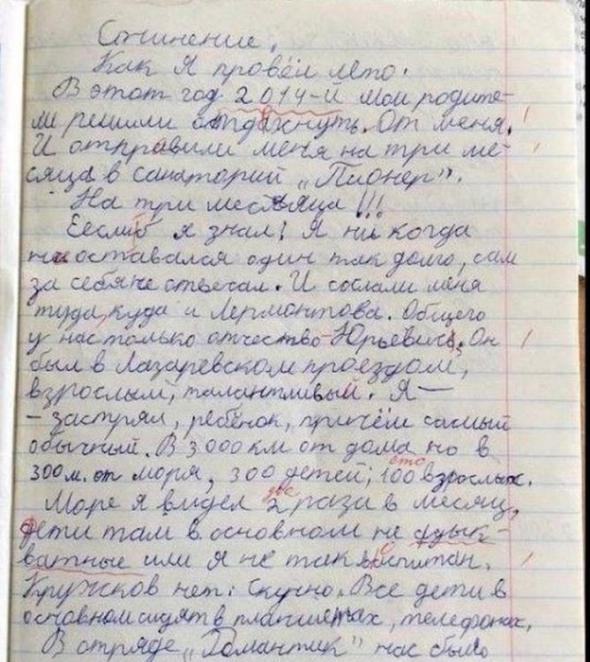 Сочинение.
Как Я провёл лето.
В этот год 2014-й мои родите-
ли решили отдохнуть. От меня.
И отправили меня на три ме-
сяца в санаторий „Пионер".
На три месяца!!!
Еслиб я знал! Я ни когда
не оставался один так долго, сам
за себя не отвечал. И сослали меня
туда, куда и Лермонтова. Общего
у нас только отчество - Юрьевич. Он
был в Лазаревском проездом,
взрослый, талантливый. Я —
- застрял, ребёнок, причём самый
обычный. В 3000 км от дома но в
300 м. от моря, 300 детей, 100 взрослых.
сто
Море я видел 2 раза в месяц,
два
дети там в основном не адык-
ватные или я не так воспитан.
Кружков нет. Скучно. Все дети в
основном сидят в планшетах, телефонах.
В отряде „Романтик" нас было